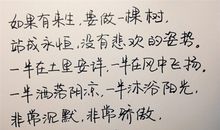 如果有来生，要做一棵树，
站成永恒，没有悲欢的姿势。
一半在土里安详，一半在风中飞扬。
一半洒落阴凉，一半沐浴阳光，
非常沉默，非常骄傲。